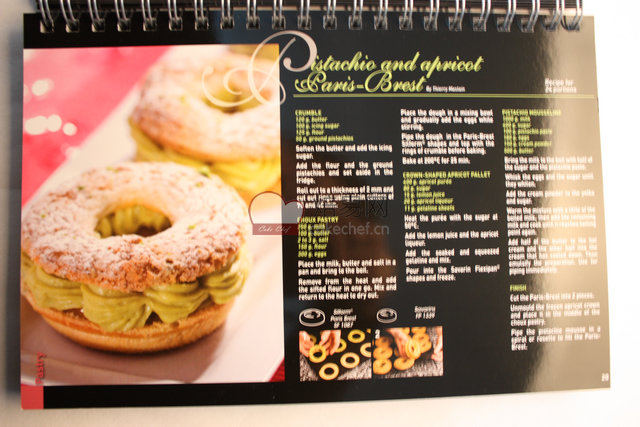 Pistachio and apricot
Paris-Brest By Thierry
Recipe for
24 portions
CRUMBLE
120 g. butter
100 g. icing sugar
120 g. flour
80 g. ground pistachios
Soften the butter and add the icing
sugar.
Add the flour and the ground
pistachios and set aside in the
fridge.
Roll out to a thickness of 2 mm and
cut out rings using plain cutters of
and 40 mm.
CHOUX PASTRY
250 g. milk
100 g. butter
2 to 3 g. salt
150 g. flour
300 g. eggs
Place the milk, butter and salt in a
pan and bring to the boil.
Remove from the heat and add
the sifted flour in one go. Mix and
return to the heat to dry out.
Place the dough in a mixing bowl
and gradually add the eggs while
stirring.
Pipe the dough in the Paris-Brest
Silform® shapes and top with the
rings of crumble before baking.
Bake at 200°C for 25 min.
CROWN-SHAPED APRICOT PALLET
g. apricot purée
g. sugar
g. lemon juice
g. apricot liqueur
gelatine sheets
Heat the purée with the sugar at
50°C.
Add the lemon juice and the apricot
liqueur.
Add the soaked and squeezed
gelatine and mix.
Pour into the Savarin Flexipan®
shapes and freeze.
PISTACHIO MOUSSELINE
1000 g. milk
g. sugar
g. pistachio paste
g. eggs
g. cream powder
g. butter
Bring the milk to the boil with half of
the sugar and the pistachio paste.
Whisk the eggs and the sugar until
they whiten.
Add the cream powder to the yolks
and sugar.
Warm the mixture with a little of the
boiled milk, then add the remaining
milk and cook until it reaches boiling
point.
Add half of the butter to the hot
cream and the other half into the
cream that has cooled down. Then
emulsify the preparation. Use for
piping immediately.
FINISH
Cut the Paris-Brest into 2 pieces.
Unmould the frozen apricot crown
and place it in the middle of the
choux pastry.
Pipe the pistachio mousse in a
spiral or rosette to fill the Paris-
Brest.
Silform®
Paris Brest
SF 1087
Savarins
FP 1339
Pastry
Cake Chef
kechef.cn